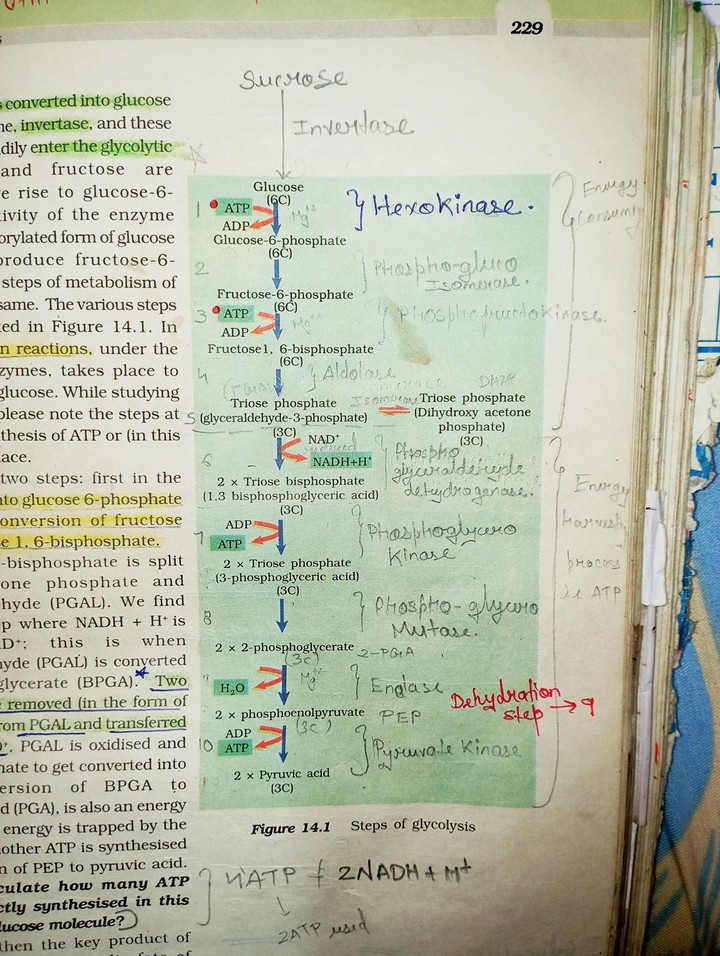 229
s converted into glucose
ne, invertase, and these
dily enter the glycolytic
and fructose are
e rise to glucose-6-
tivity of the enzyme
orylated form of glucose
produce fructose-6-
steps of metabolism of
same. The various steps
ted in Figure 14.1. In
n reactions, under the
zymes, takes place to
glucose. While studying
please note the steps at
thesis of ATP or (in this
lace.
two steps: first in the
nto glucose 6-phosphate
onversion of fructose
e 1, 6-bisphosphate.
-bisphosphate is split
one phosphate and
hyde (PGAL). We find
p where NADH + H⁺ is
D⁺; this is when
hyde (PGAL) is converted
glycerate (BPGA). Two
e removed (in the form of
rom PGAL and transferred
D⁺. PGAL is oxidised and
hate to get converted into
ersion of BPGA to
d (PGA), is also an energy
energy is trapped by the
nother ATP is synthesised
n of PEP to pyruvic acid.
culate how many ATP
ctly synthesised in this
lucose molecule?
then the key product of
Sucrose
Invertase
Glucose
(6C)
1 ATP Mg²⁺ Hexokinase.
ADP
Glucose-6-phosphate
(6C)
2 Phospho-gluco
Isomerase.
Fructose-6-phosphate
(6C)
3 ATP Mg²⁺ Phosphofructokinase.
ADP
Fructose1, 6-bisphosphate
(6C)
4 Aldolase
DHAP
Isomerase
Triose phosphate
5 (glyceraldehyde-3-phosphate)
(3C)
Triose phosphate
(Dihydroxy acetone
phosphate)
(3C)
6 NAD⁺
NADH+H⁺
Phospho
glyceraldehyde
dehydrogenase.
2 × Triose bisphosphate
(1,3 bisphosphoglyceric acid)
(3C)
ADP
7 ATP
Phosphoglycero
Kinase
2 × Triose phosphate
(3-phosphoglyceric acid)
(3C)
8 Phospho-glycero
Mutase.
2 × 2-phosphoglycerate 2-PGA
(3C)
Mg²⁺
H₂O Enolase
Dehydration
step → 9
2 × phosphoenolpyruvate PEP
(3C)
ADP
10 ATP Pyruvate Kinase
2 × Pyruvic acid
(3C)
Energy
Energy
process
ie ATP
Figure 14.1 Steps of glycolysis
4ATP & 2NADH + H⁺
↓
2ATP used